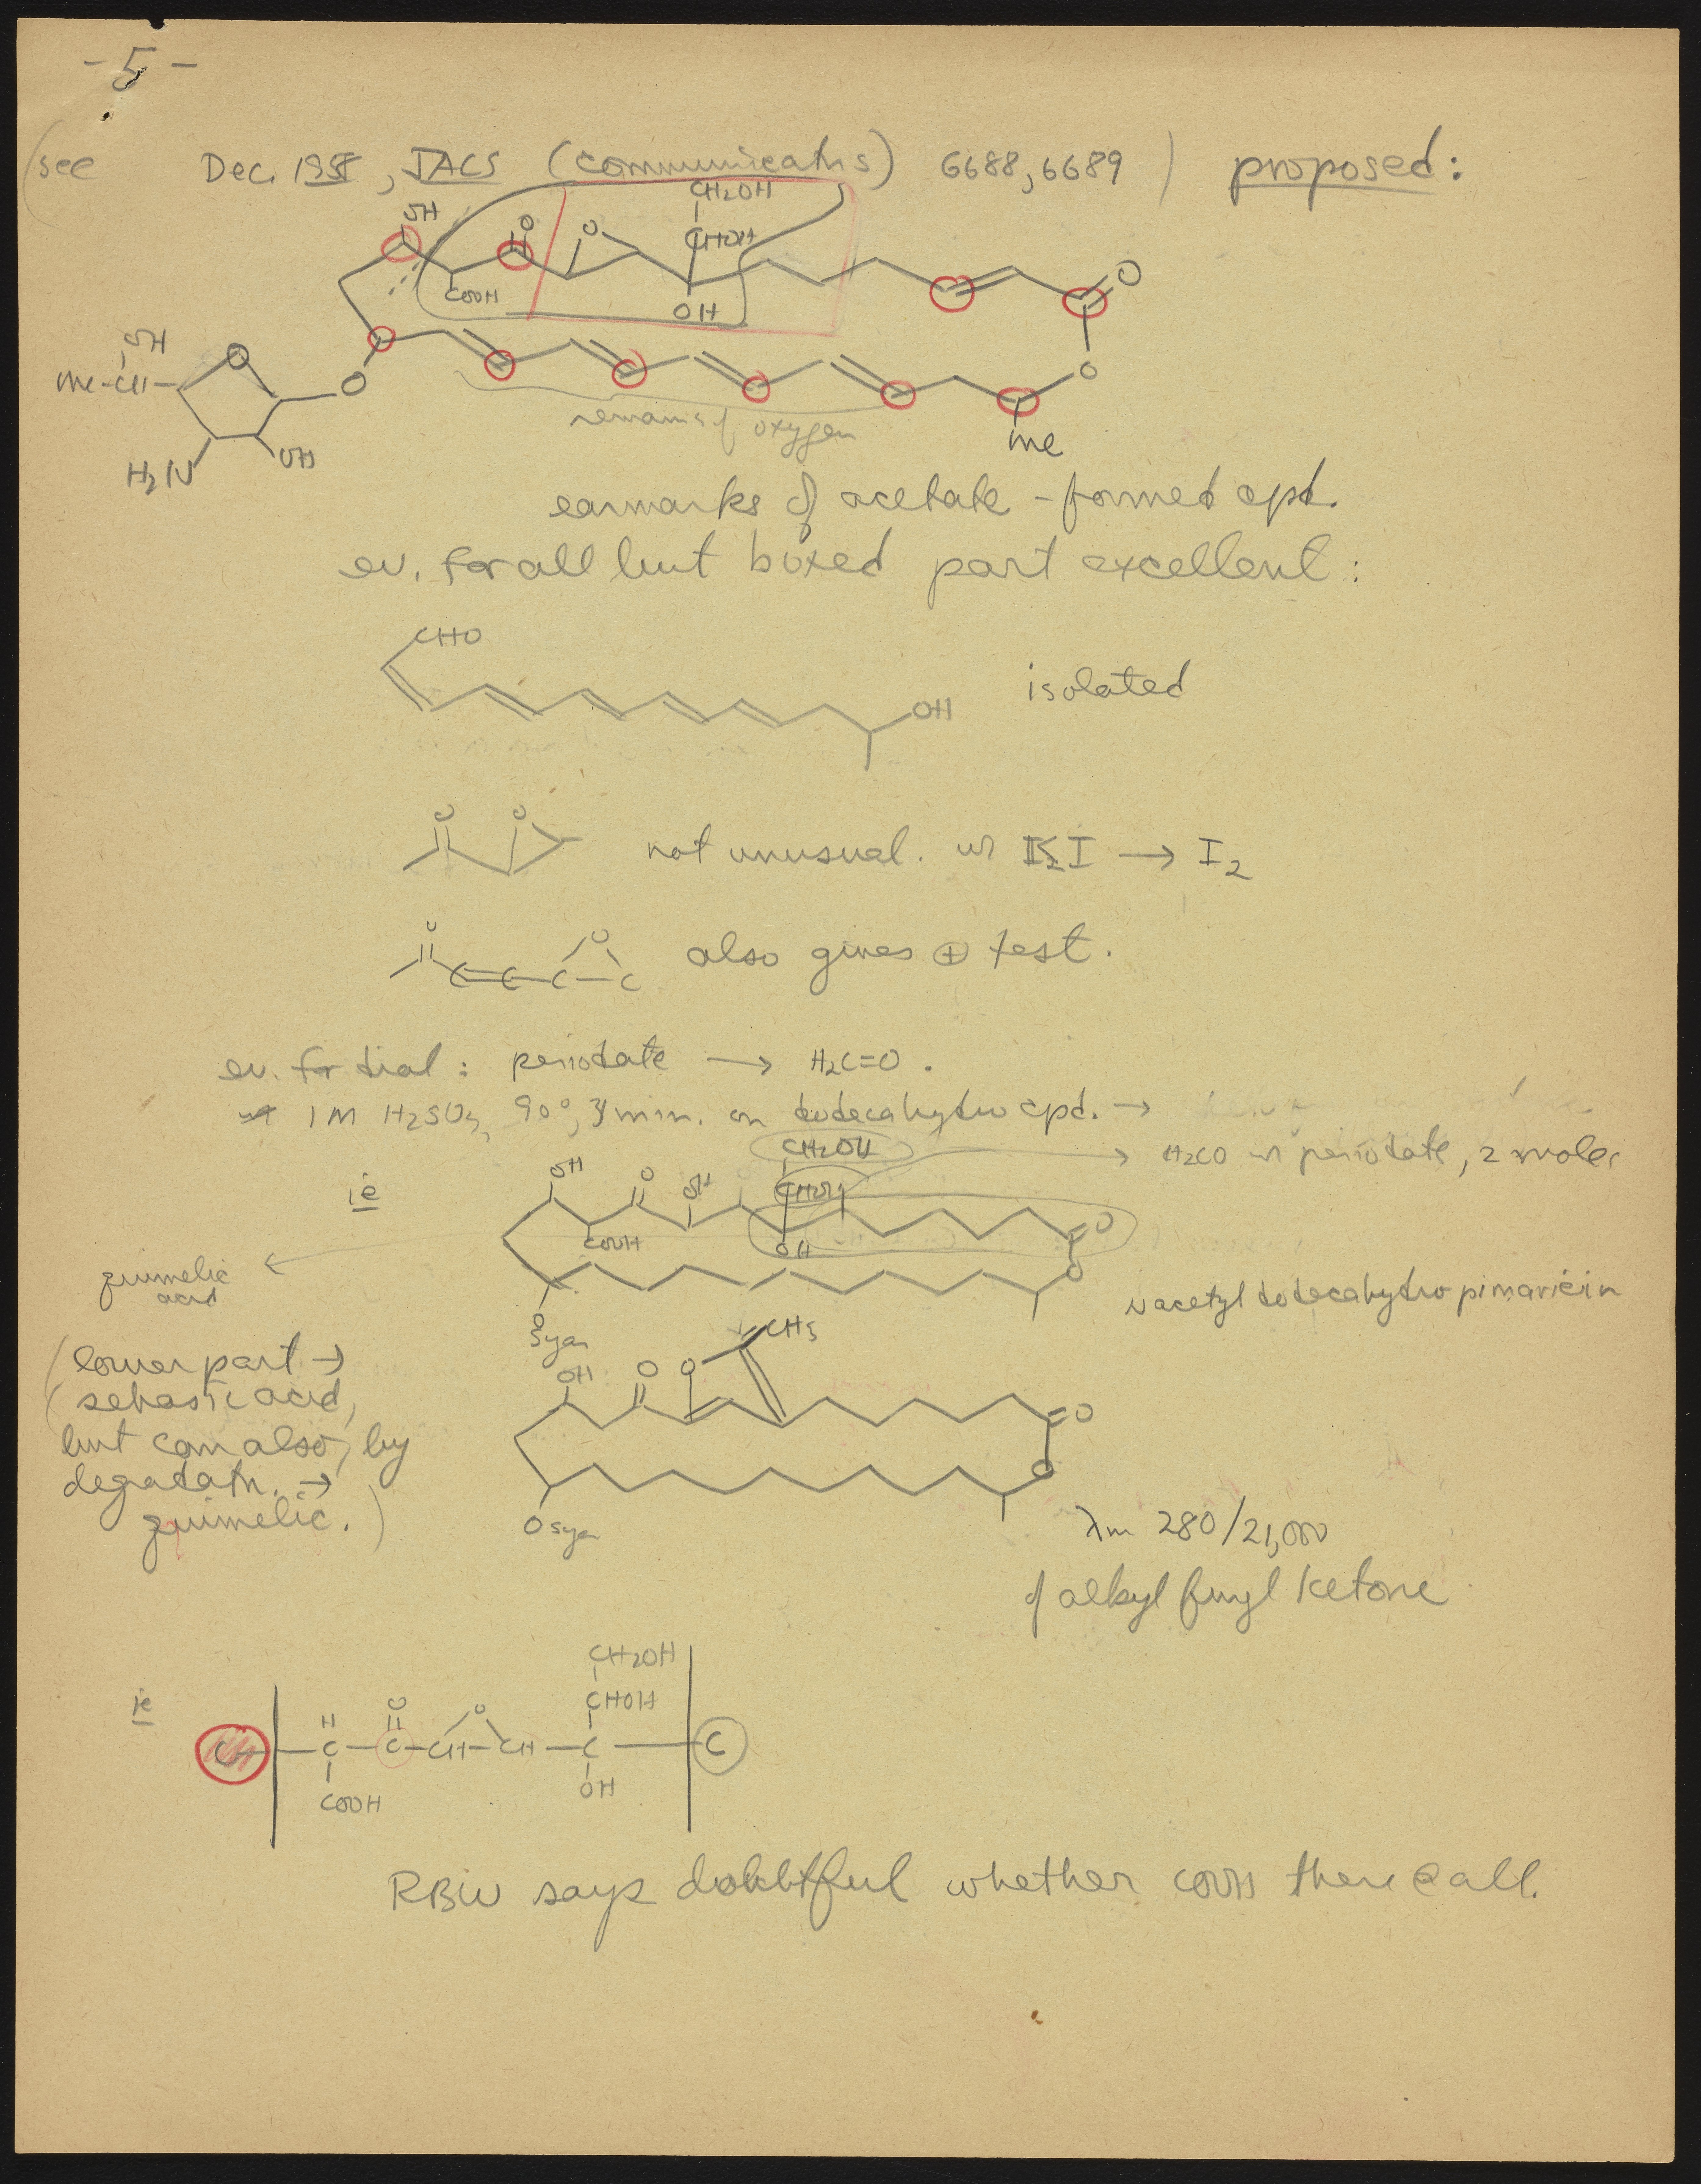 - 5 -
(see Dec. 1958, JACS (communicatns) 6688, 6689) proposed:
CH2OH
OH O O CHOH O
COOH OH
OH
Me-CH- O O O
remains of oxygen
H2N OH Me
earmarks of acetate-formed cpd.
ev. for all but boxed part excellent:
CHO
OH isolated
O O not unusual. w KI → I2
O O
C=C-C-C also gives ⊕ test.
ev. for diol: periodate → H2C=O.
1M H2SO4, 90°, 3 min. on dodecahydro cpd. →
CH2OH → H2CO w periodate, 2 moles
ie OH O OH CHOH O
COOH OH
pimelic acid ← O
N acetyl dodecahydro pimaricin
O
Sugar
CH3
(lower part →
sebasic acid,
but can also, by
degradatn. →
pimelic.)
OH O O O
O
O sugar
λm 280/21,000
of alkyl furyl ketone
CH2OH
CHOH
ie H O O
CH - C - C - CH - CH - C - C
COOH OH
RBW says doubtful whether COOH there @ all.